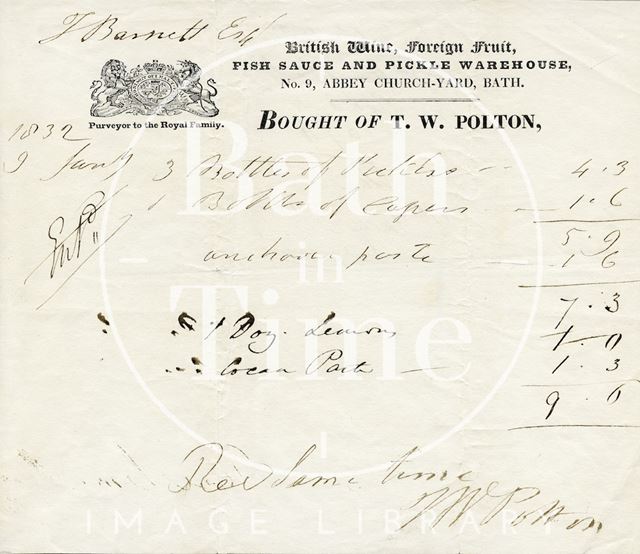 J Barnett Esqr
British Wine, Foreign Fruit,
FISH SAUCE AND PICKLE WAREHOUSE,
No. 9, ABBEY CHURCH-YARD, BATH.
Purveyor to the Royal Family.
BOUGHT OF T. W. POLTON,
1832
9 Jany 3 Bottles of Pickles 4.3
1 Bottles of Capers 1.6
5.9
Entd
anchovie paste 1 6
7.3
1 Doz. Lemons 1.0
Cocoa Paste 1.3
9.6
Recd Same time
T W Polton
Bath
in
Time
IMAGE LIBRARY